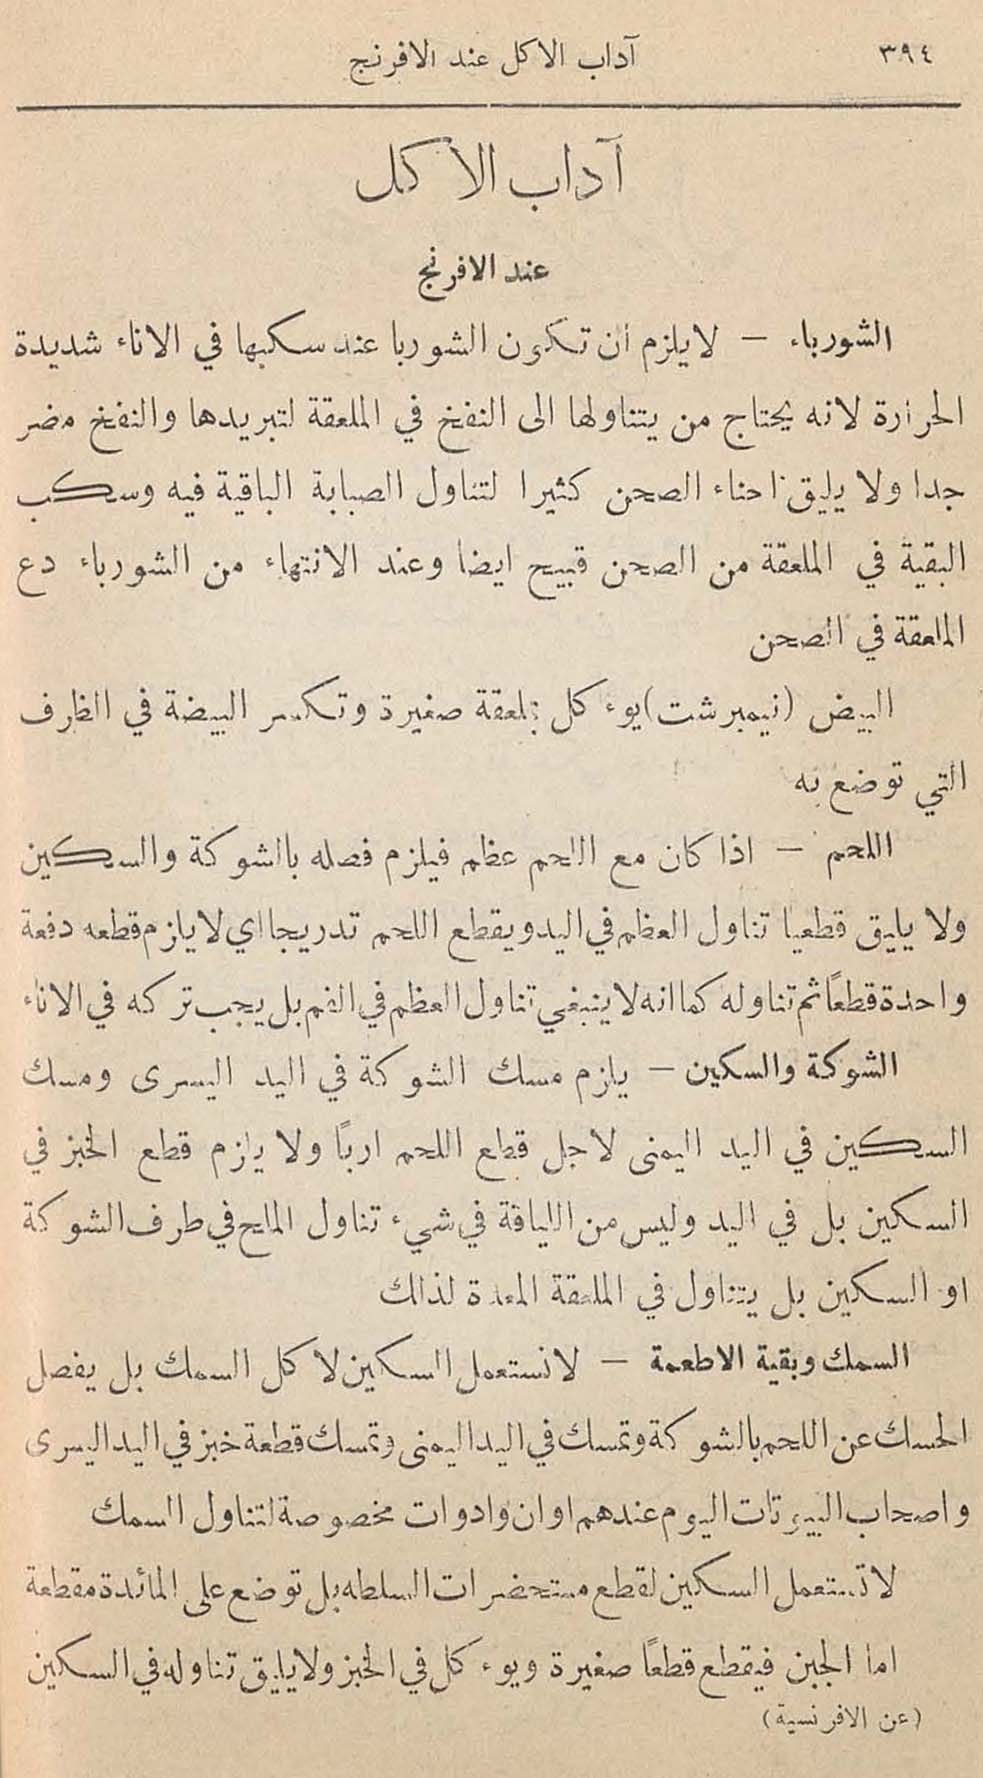 ٣٩٤
آداب الاكل عند الافرنج
آداب الاكل
عند الافرنج
الشورباء — لا يلزم ان تكون الشوربا عند سكبها في الاناء شديدة
الحرارة لانه يحتاج من يتناولها الى النفخ في الملعقة لتبريدها والنفخ مضر
جدا ولا يليق احناء الصحن كثيرا لتناول الصبابة الباقية فيه وسكب
البقية في الملعقة من الصحن قبيح ايضا وعند الانتهاء من الشورباء دع
الملعقة في الصحن
البيض (نيمبرشت) يوء كل بملعقة صغيرة وتكسر البيضة في الظرف
التي توضع به
اللحم — اذا كان مع اللحم عظم فيلزم فصله بالشوكة والسكين
ولا يليق قطعيا تناول العظم في اليد ويقطع اللحم تدريجا اي لا يلزم قطعه دفعة
واحدة قطعاً ثم تناوله كما انه لا ينبغي تناول العظم في الفم بل يجب تركه في الاناء
الشوكة والسكين — يلزم مسك الشوكة في اليد اليسرى ومسك
السكين في اليد اليمنى لاجل قطع اللحم ارباً ولا يلزم قطع الخبز في
السكين بل في اليد وليس من اللياقة في شيء تناول الملح في طرف الشوكة
او السكين بل يتناول في الملعقة المعدة لذلك
السمك وبقية الاطعمة — لا تستعمل السكين لاكل السمك بل يفصل
الحسك عن اللحم بالشوكة وتمسك في اليد اليمنى وتمسك قطعة خبز في اليد اليسرى
واصحاب البيوتات اليوم عندهم اوان وادوات مخصوصة لتناول السمك
لا تستعمل السكين لقطع مستحضرات السلطه بل توضع على المائدة مقطعة
اما الجبن فيقطع قطعاً صغيرة ويوء كل في الخبز ولا يليق تناوله في السكين
(عن الافرنسية)